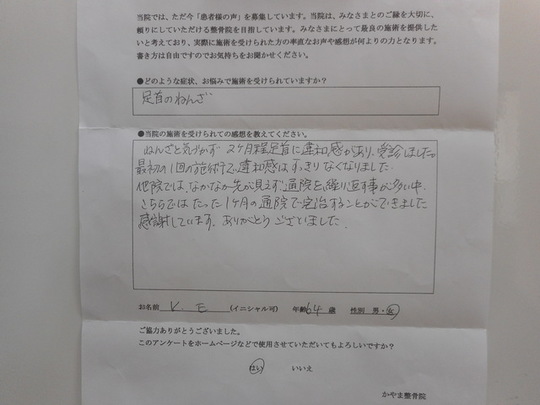 当院では、ただ今「患者様の声」を募集しています。当院は、みなさまとのご縁を大切に、
頼りにしていただける整骨院を目指しています。みなさまにとって最良の施術を提供した
いと考えており、実際に施術を受けられた方の率直なお声や感想が何よりの力となります。
書き方は自由ですのでお気持ちをお聞かせください。
●どのような症状、お悩みで施術を受けられていますか？
足首のねんざ
●当院の施術を受けられての感想を教えてください。
ねんざと気づかず 2ヶ月程足首に違和感があり、受診しました。
最初の1回の施術で違和感はすっきりなくなりました。
他院では、なかなか先が見えず通院を繰り返す事が多い中、
こちらではたった1ヶ月の通院で完治することができました
感謝しています。ありがとうございました。
お名前 K. E (イニシャル可) 年齢 64 歳 性別 男・女
ご協力ありがとうございました。
このアンケートをホームページなどで使用させていただいてもよろしいですか？
はい いいえ
かやま整骨院